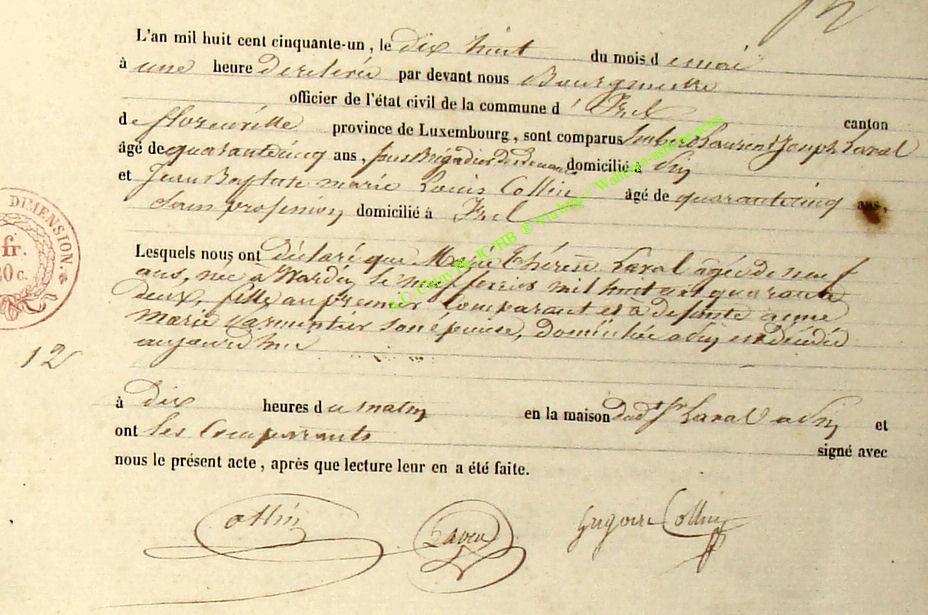 12
L'an mil huit cent cinquante-un, le dix huit du mois de mai
à une heure de relevée par devant nous Bourgmestre
officier de l'état civil de la commune d' Izel canton
de florenville province de Luxembourg, sont comparus Laurent Joseph Laval
âgé de quarantecinq ans, Brigadier domicilié à
et Jean Baptiste marie Louis Collin âgé de quarantecinq ans,
sans profession domicilié à Izel
DIMENSION
fr.
0 c.
Lesquels nous ont déclaré que Marie thérèse Laval âgée de neuf
ans, née a Wardin le neuf fevrier mil huit cent quarante
deux, fille au premier Comparant et à defunte anne
marie son épouse, domiciliée est décédée
aujourd'hui
12
à dix heures du matin en la maison dudt Sr Laval a et
ont les Comparants signé avec
nous le présent acte, après que lecture leur en a été faite.
Collin Laval Grégoire Collin